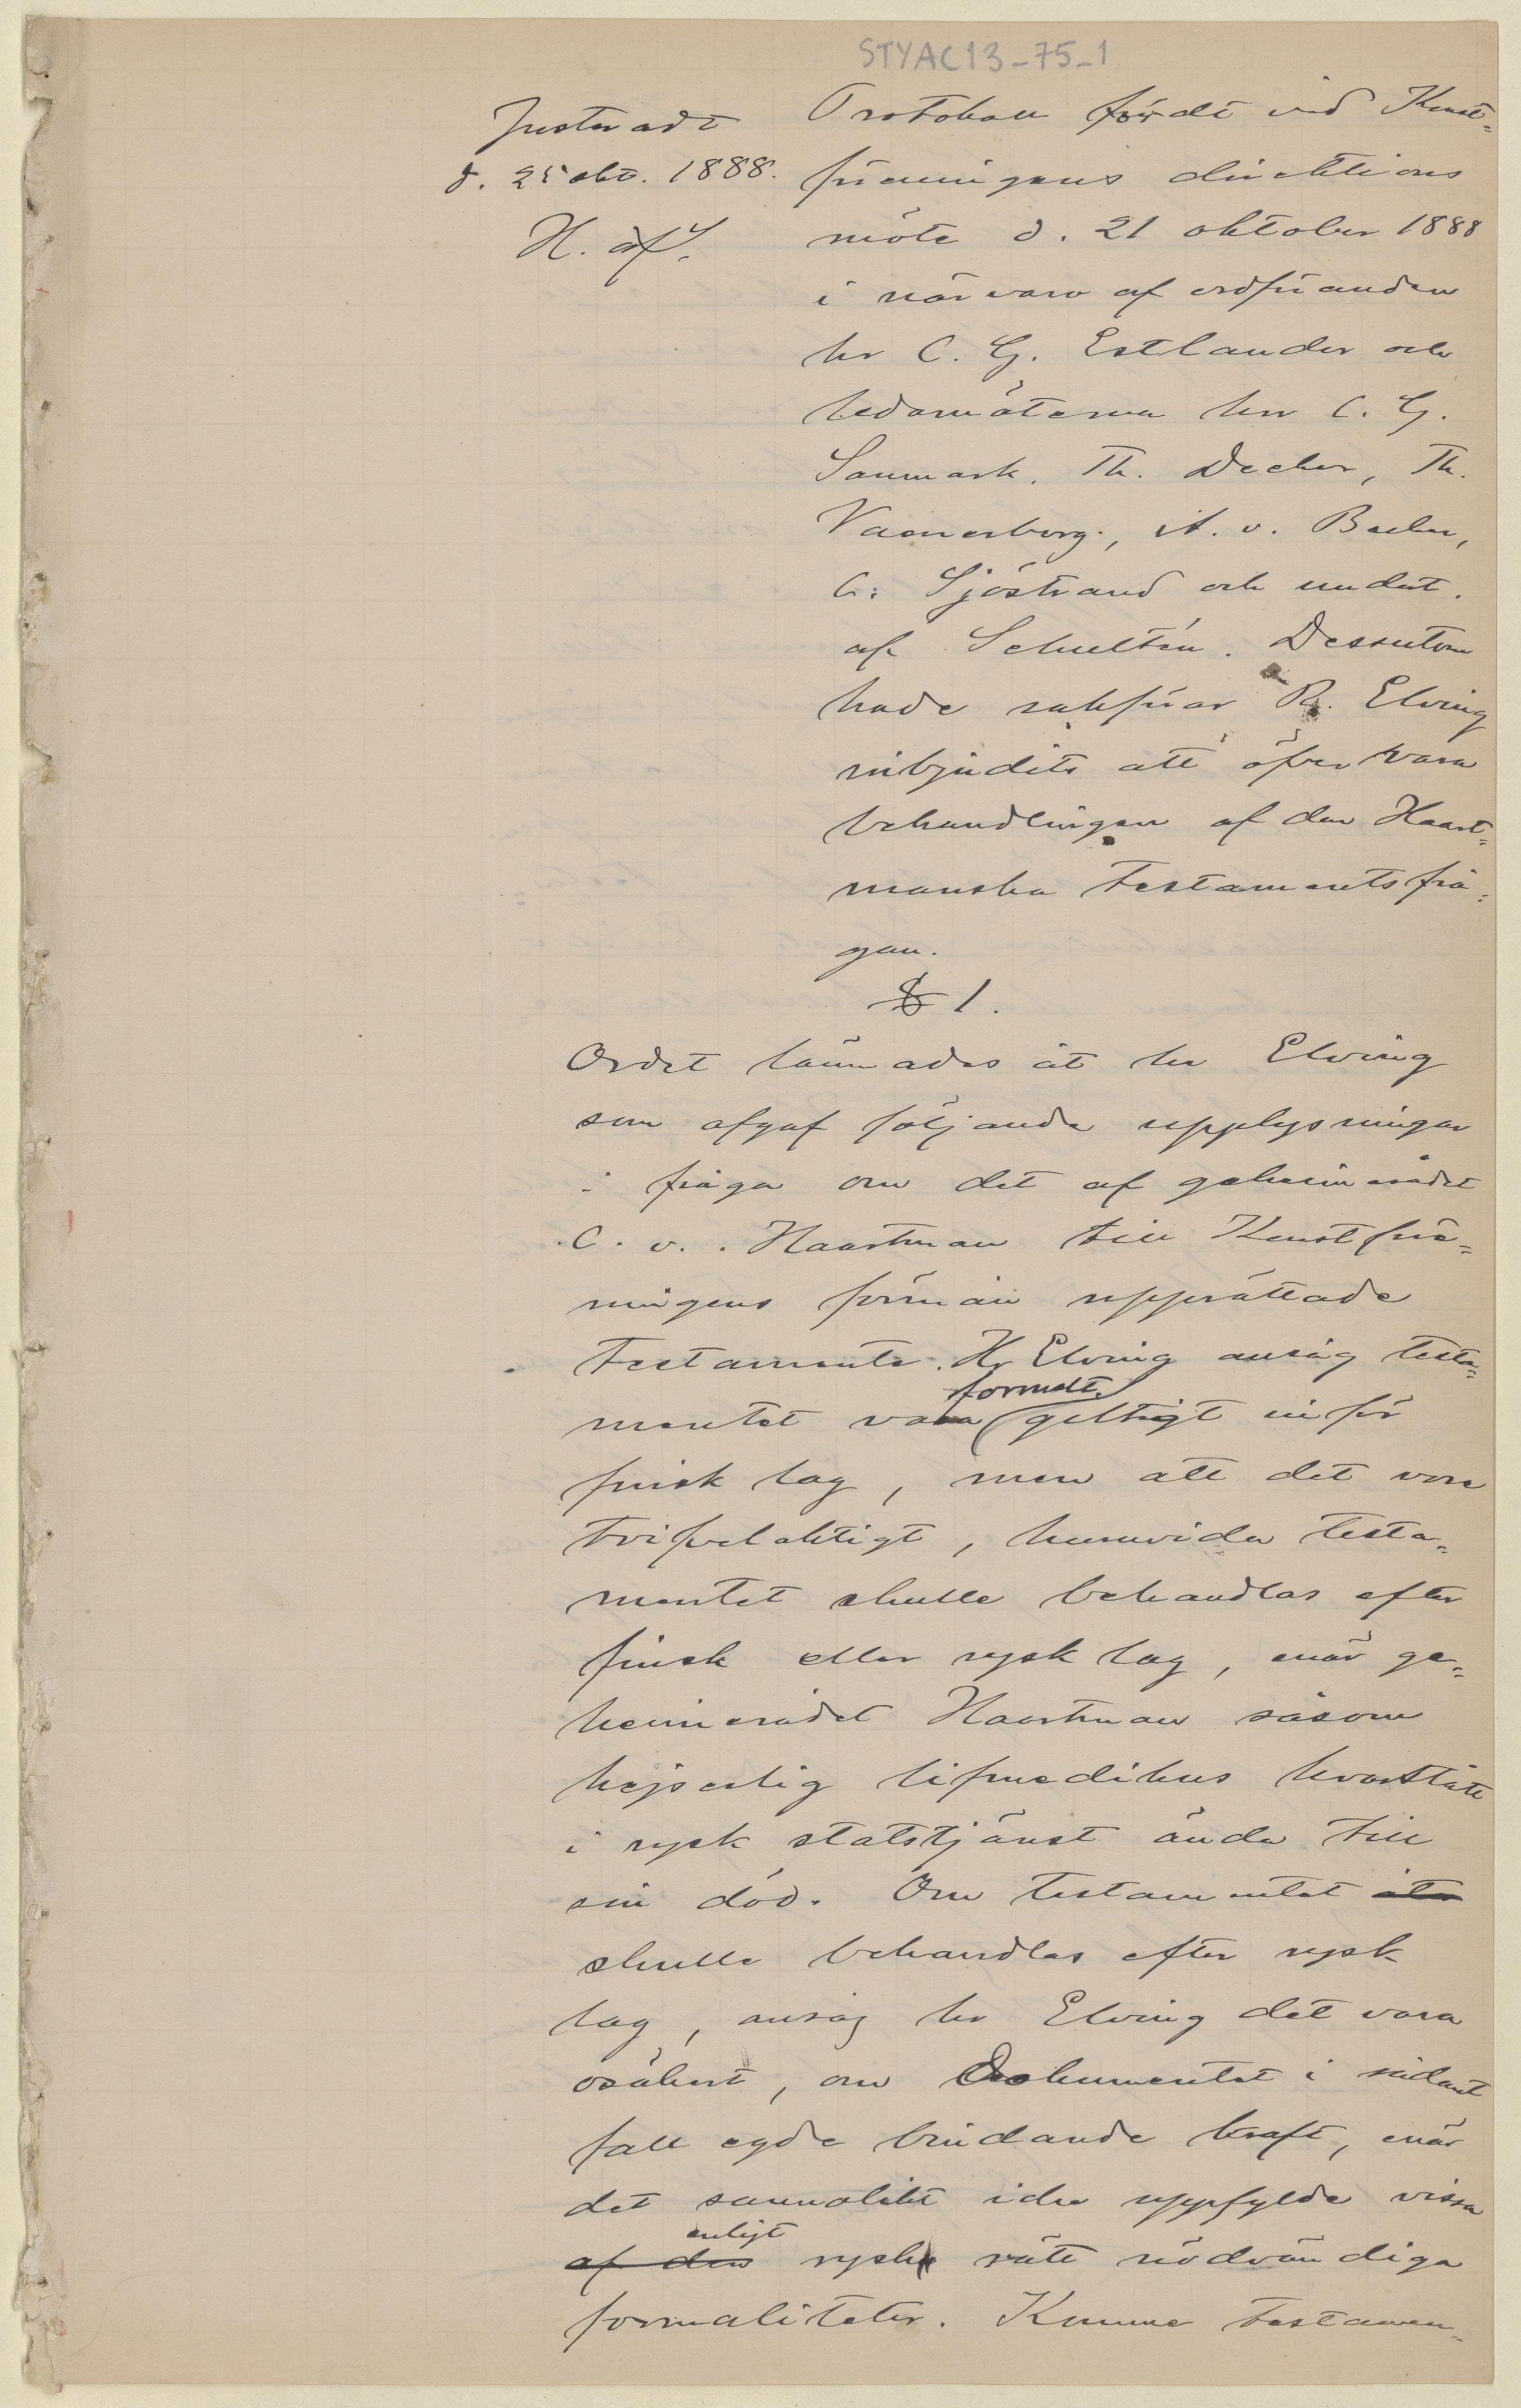 STYAC13-75-1
Justeradt
d. 25 okt. 1888.
H. af S.
Protokoll fördt vid Konst=
föreningens direktions
möte d. 21 oktober 1888
i närvaro af ordföranden
hr C. G. Estlander och
ledamöterna hrr C. G.
Sanmark, Th. Decker, Th.
Waenerberg, A. v. Becker,
C. Sjöstrand och undert.
af Schultén. Dessutom
hade rådför R. Elving
inbjudits att öfvervara
behandlingen af den Haart=
manska testamentsfrå=
gan.
§ 1.
Ordet lämnades åt hr Elving
som afgaf följande upplysningar
i fråga om det af geheimerådet
C. v. Haartman till Konstföre=
ningens förmån upprättade
testamente. Hr Elving ansåg testa=
mentet vara formelt giltigt inför
finsk lag, men att det vore
tvifvelaktigt, huruvida testa=
mentet skulle behandlas efter
finsk eller rysk lag, enär ge=
heimerådet Haartman såsom
kejserlig lifmedikus kvarstått
i rysk statstjänst ända till
sin död. Om testamentet
skulle behandlas efter rysk
lag, ansåg hr Elving det vara
osäkert, om dokumentet i sådant
fall egde bindande kraft, enär
det sannolikt icke uppfylde vissa
af den enligt rysk rätt nödvändiga
formaliteter. Kunne testamen=